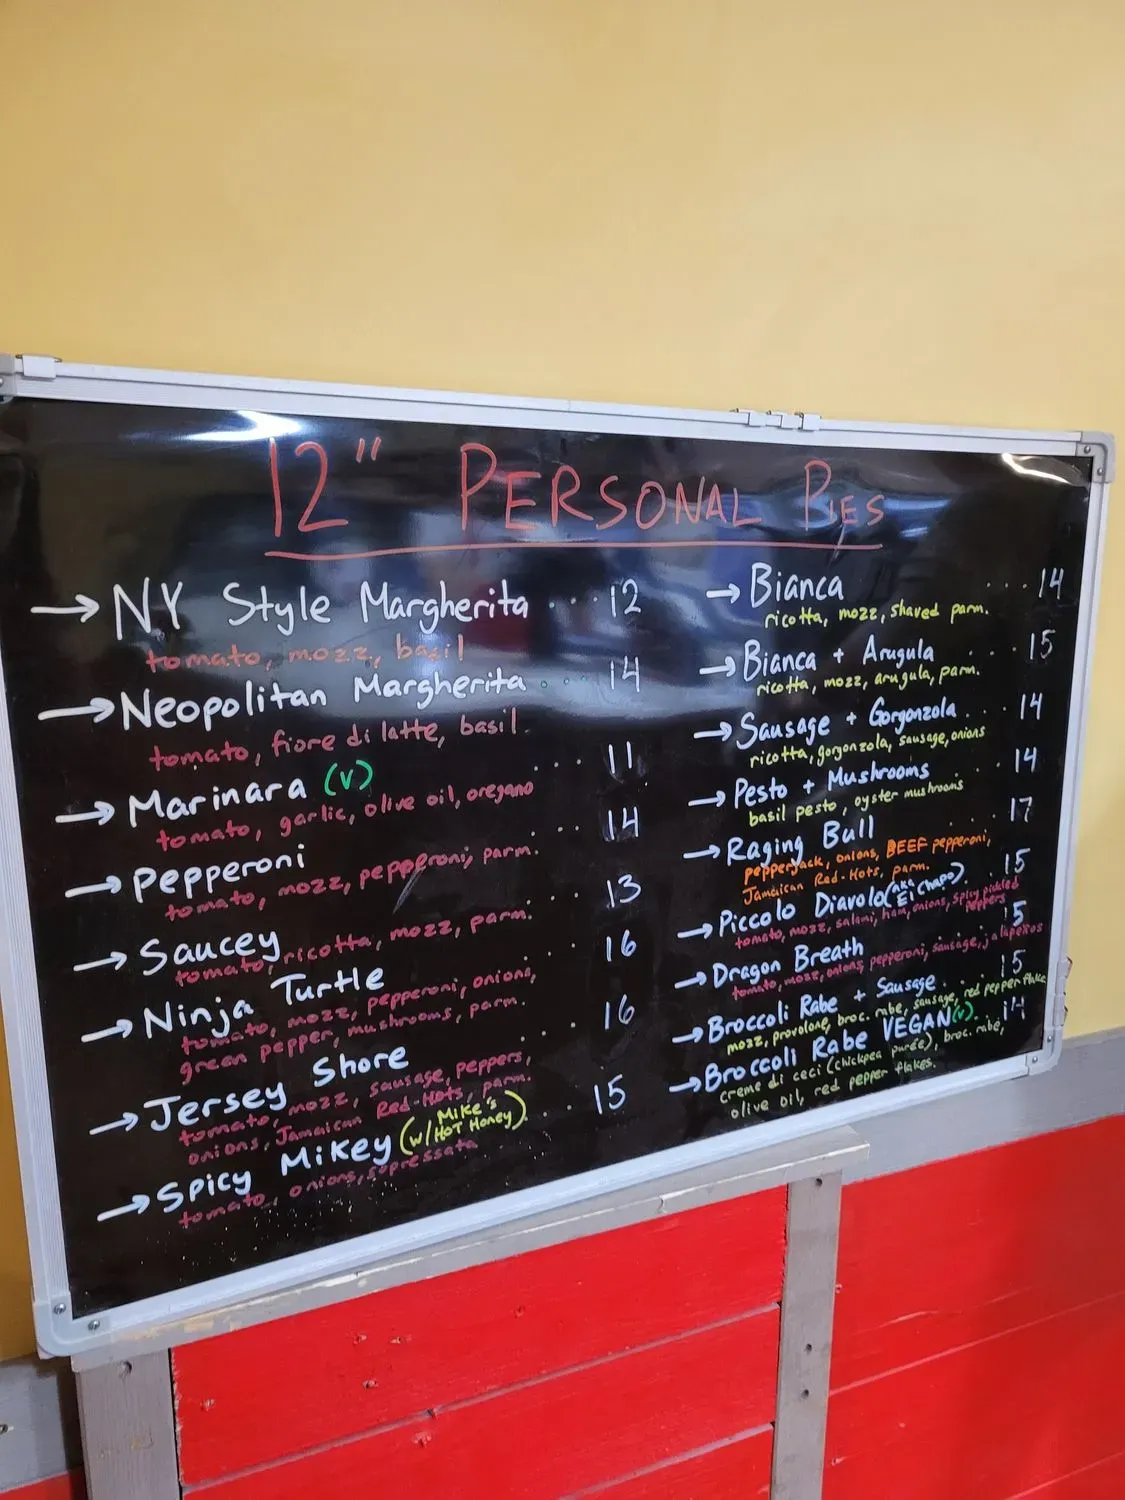 12" PERSONAL PIES
→ NY Style Margherita ... 12
tomato, mozz, basil
→ Neopolitan Margherita ... 14
tomato, fiore di latte, basil
→ Marinara (v) ... 11
tomato, garlic, olive oil, oregano
→ Pepperoni ... 14
tomato, mozz, pepperoni, parm.
→ Saucey ... 13
tomato, ricotta, mozz, parm.
→ Ninja Turtle ... 16
tomato, mozz, pepperoni, onions,
green pepper, mushrooms, parm.
→ Jersey Shore ... 16
tomato, mozz, sausage, peppers,
onions, Jamaican Red-Hots, parm.
→ Spicy Mikey (w/ Mike's HOT Honey) ... 15
tomato, onions, sopressata
→ Bianca ... 14
ricotta, mozz, shaved parm.
→ Bianca + Arugula ... 15
ricotta, mozz, arugula, parm.
→ Sausage + Gorgonzola ... 14
ricotta, gorgonzola, sausage, onions
→ Pesto + Mushrooms ... 14
basil pesto, oyster mushrooms
→ Raging Bull ... 17
pepperjack, onions, BEEF pepperoni,
Jamaican Red-Hots, parm.
→ Piccolo Diavolo (aka El Chapo) ... 15
tomato, mozz, salami, ham, onions, spicy pickled
peppers
→ Dragon Breath 15
tomato, mozz, onions, pepperoni, sausage, jalapeños
→ Broccoli Rabe + Sausage . 15
mozz, provolone, broc. rabe, sausage, red pepper flake
→ Broccoli Rabe VEGAN (v) . 14
creme di ceci (chickpea purée), broc. rabe,
olive oil, red pepper flakes.